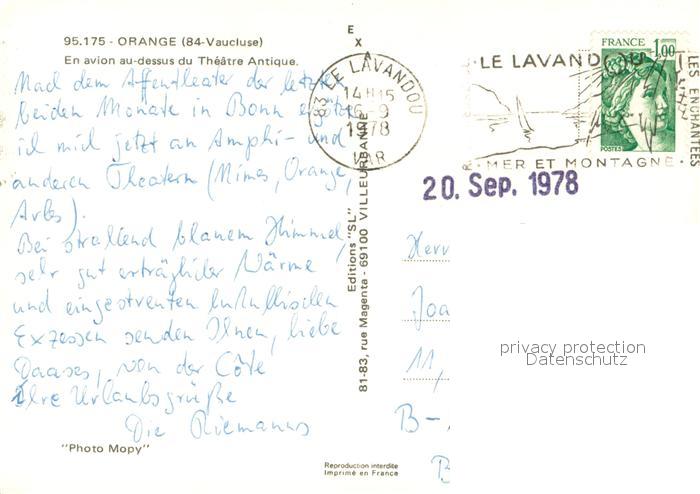 95.175 - ORANGE (84-Vaucluse)
En avion au-dessus du Théâtre Antique.
Nach dem Affentheater der letzten
beiden Monate in Bonn ergötze
ich mich jetzt an Amphi- und
anderen Theatern (Nimes, Orange,
Arles).
Bei strahlend blauem Himmel,
sehr gut erträglicher Wärme
und eingestreuten lukullischen
Exzessen senden Ihnen, liebe
Daases, von der Côte
Ihre Urlaubsgrüße
Die Riemanns
"Photo Mopy"
EX
Editions "SL"
81-83, rue Magenta - 69100 VILLEURBANNE
Reproduction interdite
Imprimé en France
83 LE LAVANDOU
14H15
16-9
1978
VAR
LE LAVANDOU
MER ET MONTAGNE
FRANCE 1,00
POSTES
20. Sep. 1978
Herr
Joa
11,
B-
B
privacy protection
Datenschutz